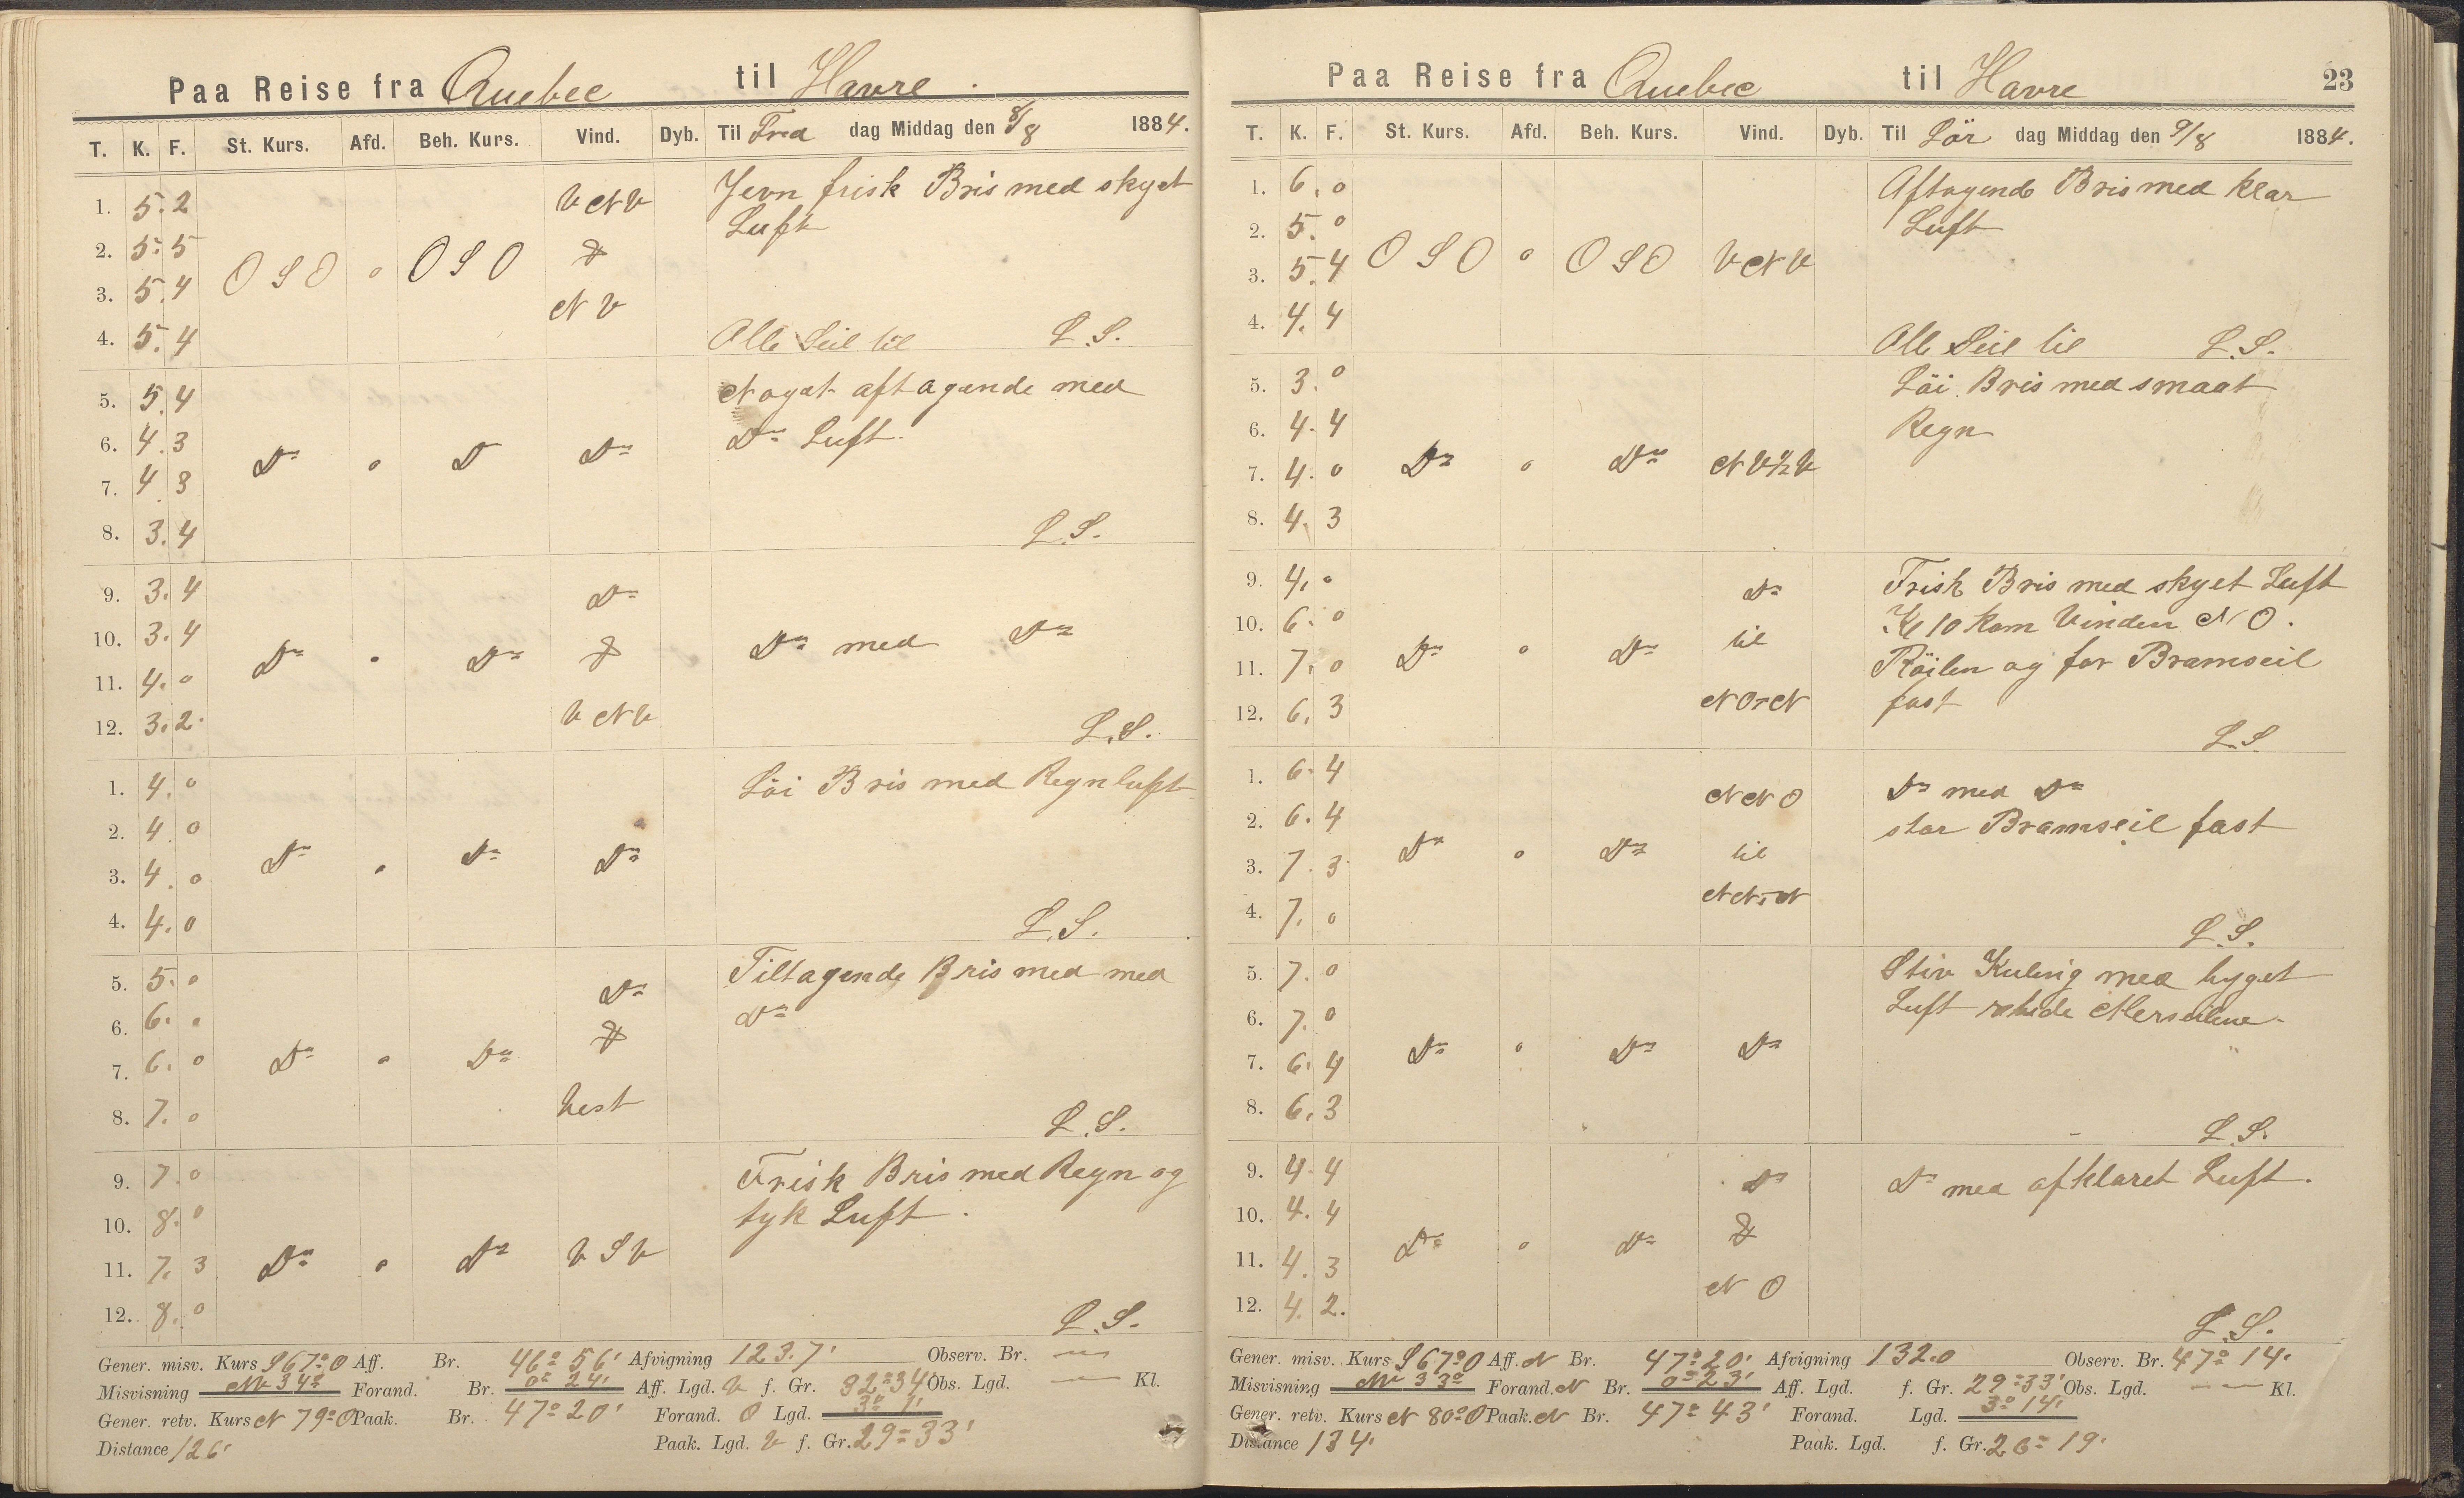 Paa Reise fra Quebec til Havre.
T. K. F. St. Kurs. Afd. Beh. Kurs. Vind. Dyb. Til Fre dag Middag den 8/8 1884.
1. 5.2 V N V Jevn frisk Bris med skyet
Luft
2. 5.5 &
3. 5.4 O S O 0 O S O N V
4. 5.4 Alle Seil til L.S.
5. 5.4 Noget aftagende med
6. 4.3 Do Luft.
7. 4 3 Do 0 D Do
8. 3.4 L.S.
9. 3.4 Do
10. 3.4 Do 0 Do & Do med Do
11. 4.0
12. 3.2. V N V L.S.
1. 4.0 Löi Bris med Regnluft
2. 4.0
3. 4.0 Do 0 Do Do
4. 4.0 L.S.
5. 5.0 Do Tiltagende Bris med med
6. 6.0 & Do
7. 6.0 Do 0 Do
8. 7.0 Vest L.S.
9. 7.0 Frisk Bris med Regn og
10. 8.0 tyk Luft.
11. 7.3 Do 0 Do V S V
12. 8.0 L.S.
Gener. misv. Kurs S 67° O Aff. Br. 46° 56' Afvigning 123.7' Observ. Br. —
Misvisning NV 34° Forand. Br. 0° 24' Aff. Lgd. V f. Gr. 32° 34' Obs. Lgd. — Kl.
Gener. retv. Kurs N 79° O Paak. Br. 47° 20' Forand. O Lgd. 3° 1'
Distance 126' Paak. Lgd. V f. Gr. 29° 33'
Paa Reise fra Quebec til Havre 23
T. K. F. St. Kurs. Afd. Beh. Kurs. Vind. Dyb. Til Lör dag Middag den 9/8 1884.
1. 6.0 Aftagende Bris med klar
2. 5.0 Luft
3. 5.4 O S O 0 O S O V N V
4. 4.4 Alle Seil til L.S.
5. 3.0 Löi Bris med smaat
6. 4.4 Regn
7. 4.0 Do 0 Do N V ½ V
8. 4.3
9. 4.0 Do Frisk Bris med skyet Luft
10. 6.0 til Kl 10 kom Vinden N O.
11. 7.0 Do 0 Do Röilen og for Bramseil
12. 6.3 N O - N fast
L.S.
1. 6.4 N N O Do med Do
2. 6.4 stor Bramseil fast
3. 7.3 Do 0 Do til
4. 7.0 N N - N
L.S.
5. 7.0 Stiv Kuling med byget
6. 7.0 Luft Merseilene.
7. 6.4 Do 0 Do Do
8. 6.3 L.S.
9. 4.4 Do Do med afklaret Luft.
10. 4.4 &
11. 4.3 Do 0 Do
12. 4.2. N O L.S.
Gener. misv. Kurs S 67° O Aff. N Br. 47° 20' Afvigning 132.0 Observ. Br. 47° 14'
Misvisning NV 33° Forand. N Br. 0° 23' Aff. Lgd. f. Gr. 29° 33' Obs. Lgd. — Kl.
Gener. retv. Kurs N 80° O Paak. N Br. 47° 43' Forand. Lgd. 3° 14'
Distance 134' Paak. Lgd. f. Gr. 26° 19'